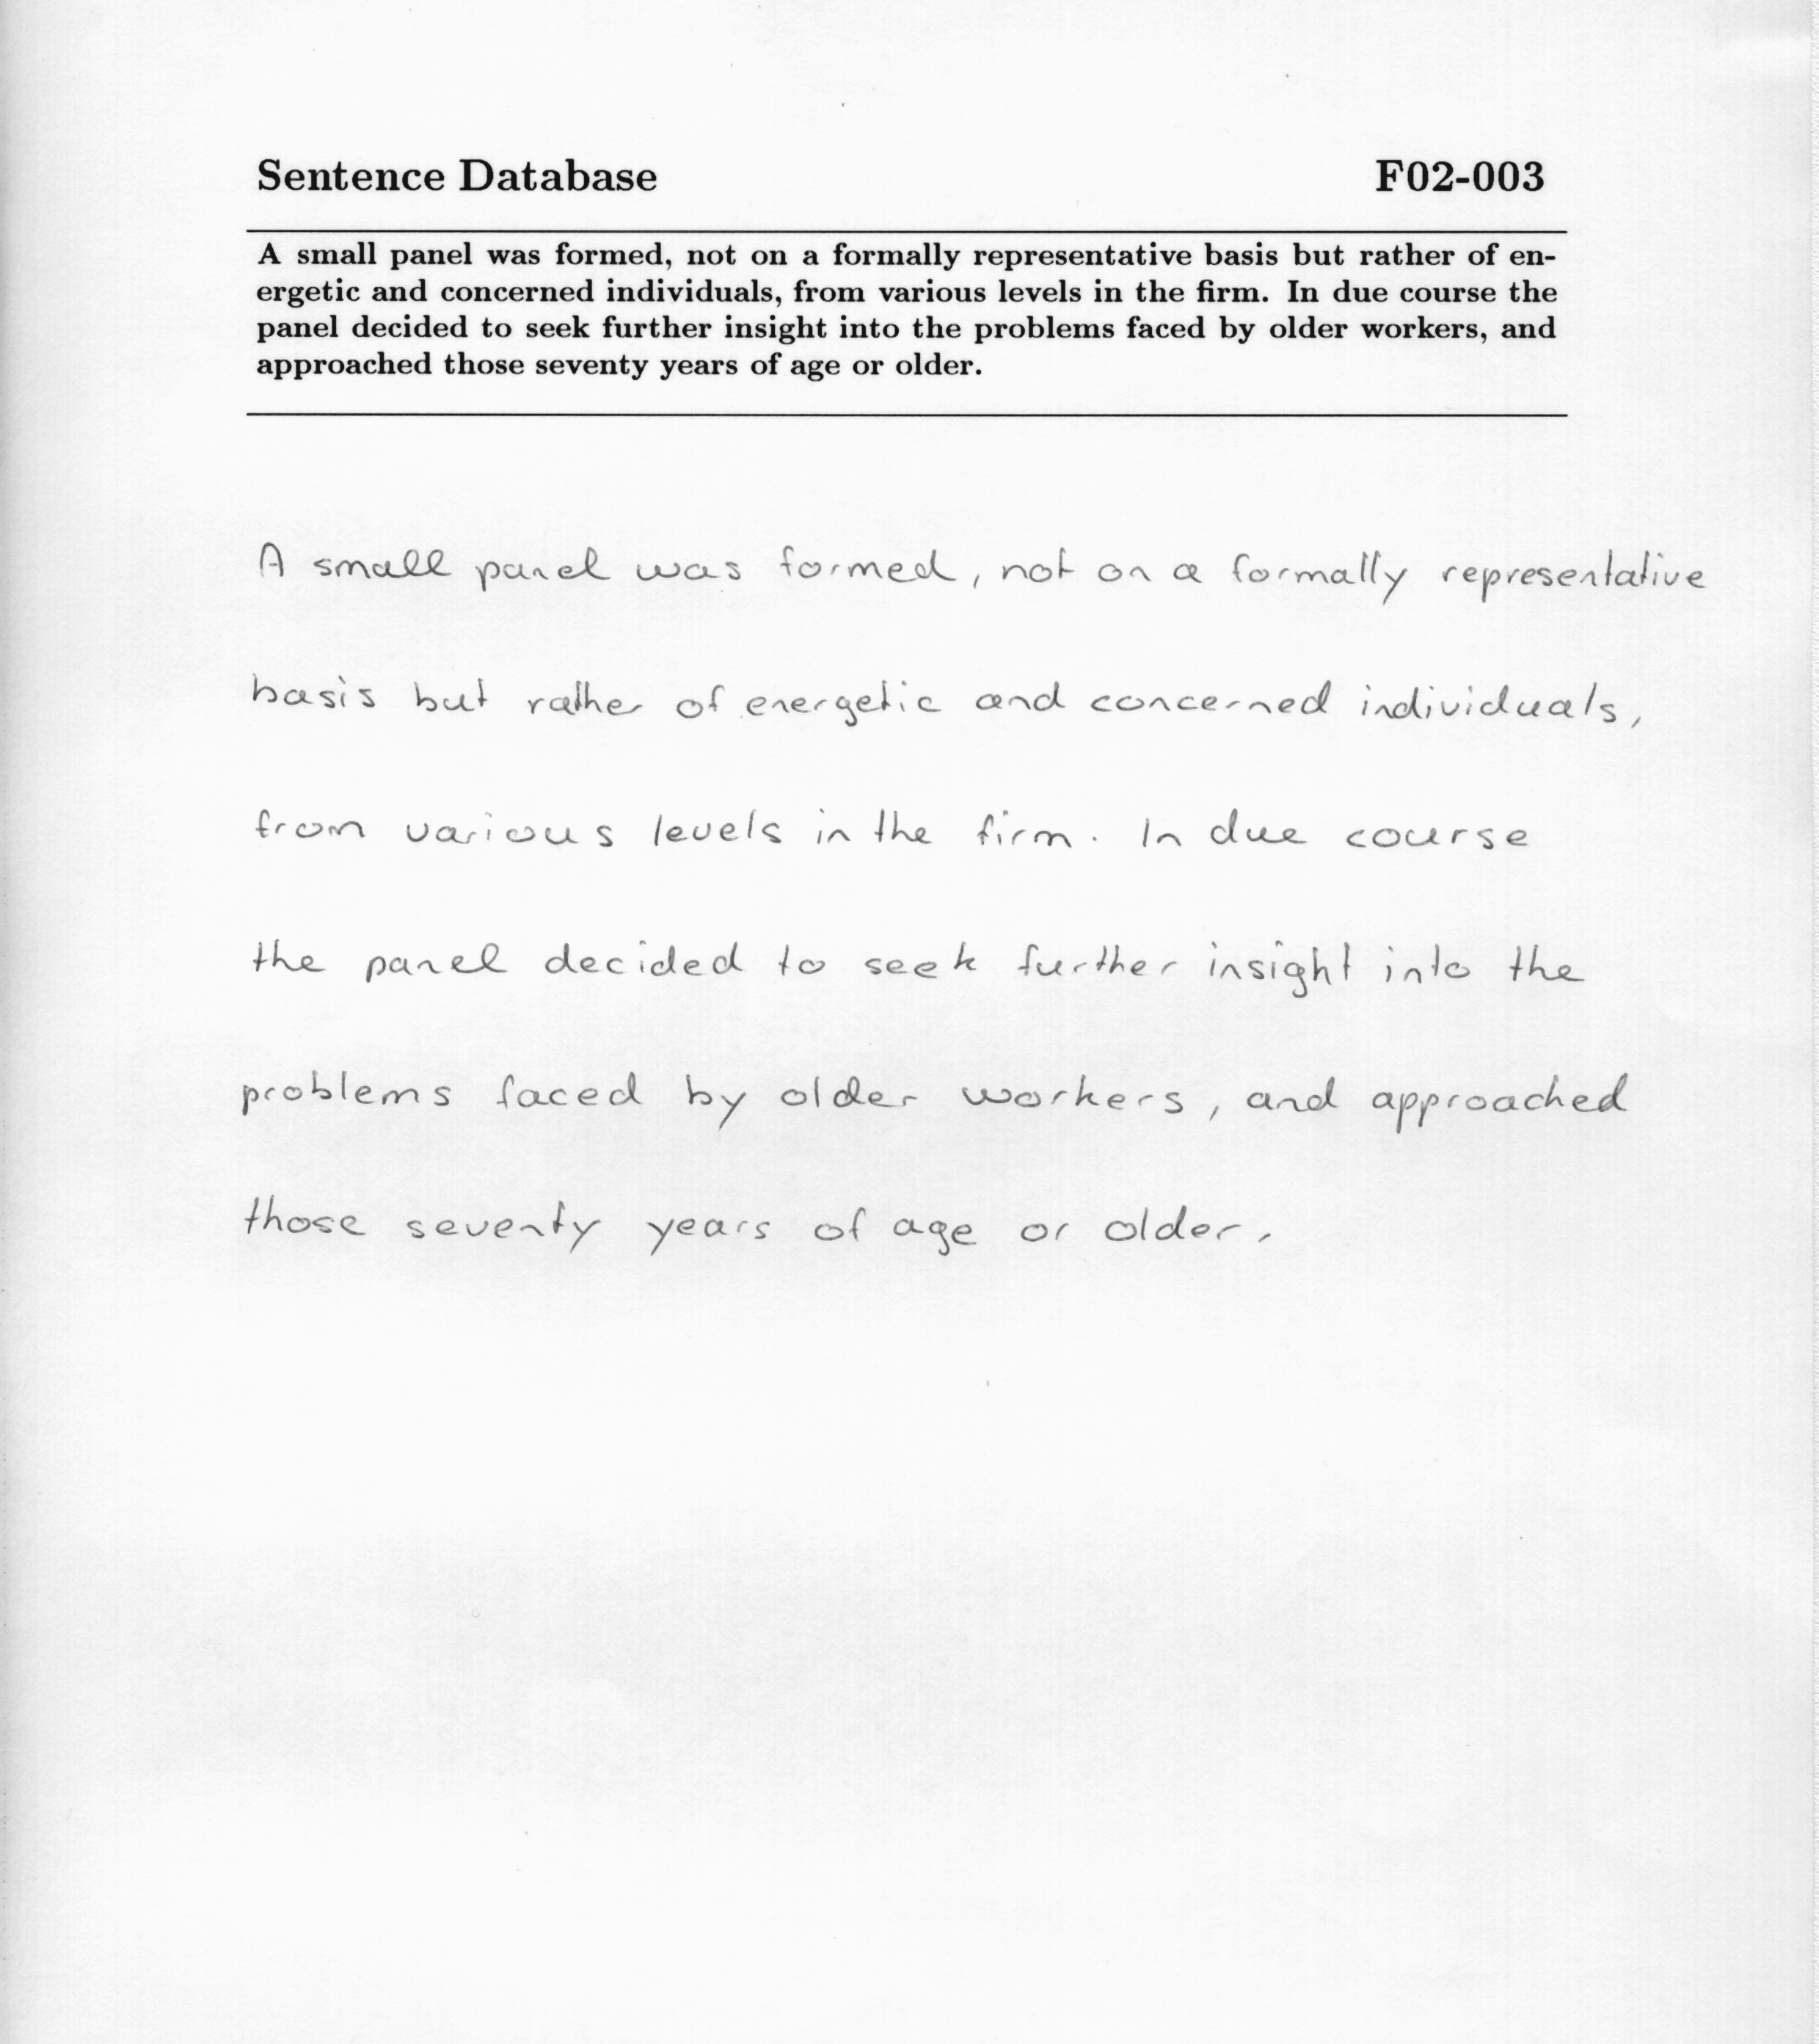 Sentence Database F02-003
A small panel was formed, not on a formally representative basis but rather of en-
ergetic and concerned individuals, from various levels in the firm. In due course the
panel decided to seek further insight into the problems faced by older workers, and
approached those seventy years of age or older.
A small panel was formed, not on a formally representative
basis but rather of energetic and concerned individuals,
from various levels in the firm. In due course
the panel decided to seek further insight into the
problems faced by older workers, and approached
those seventy years of age or older.